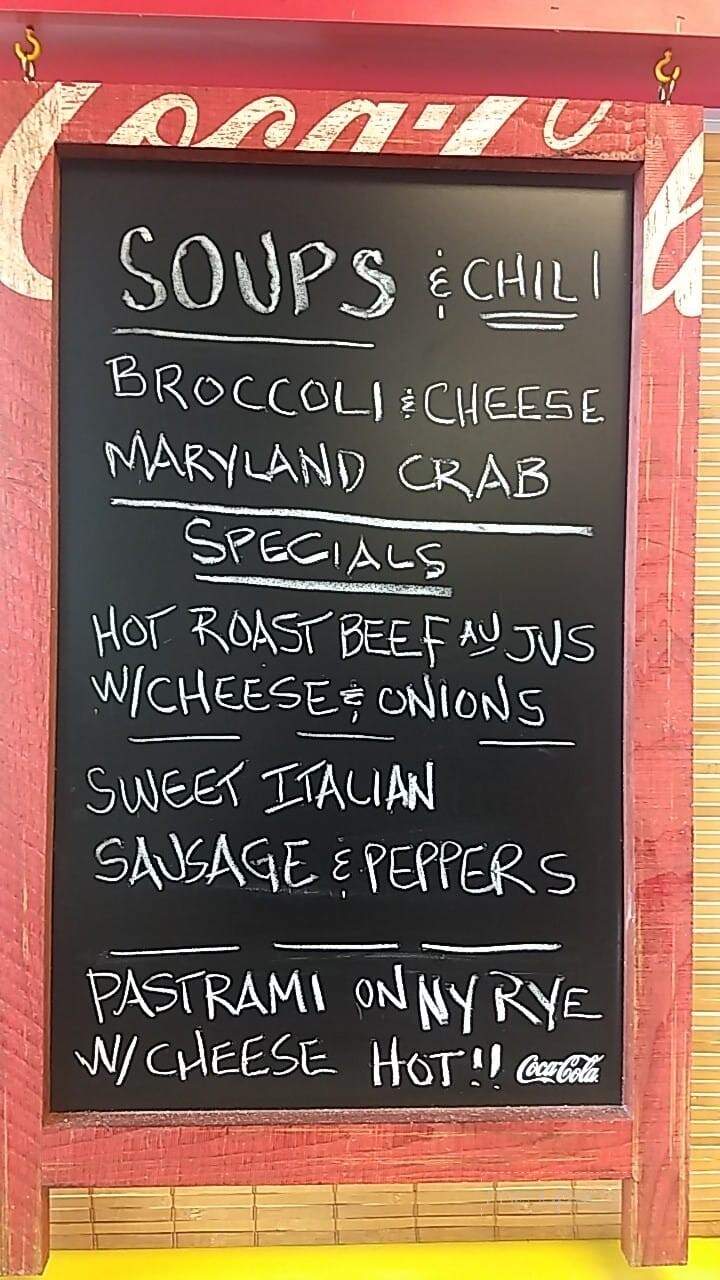 Coca-Cola
SOUPS & CHILI
BROCCOLI & CHEESE
MARYLAND CRAB
SPECIALS
HOT ROAST BEEF AU JUS
W/CHEESE & ONIONS
SWEET ITALIAN
SAUSAGE & PEPPERS
PASTRAMI ON NY RYE
W/CHEESE HOT!! Coca-Cola